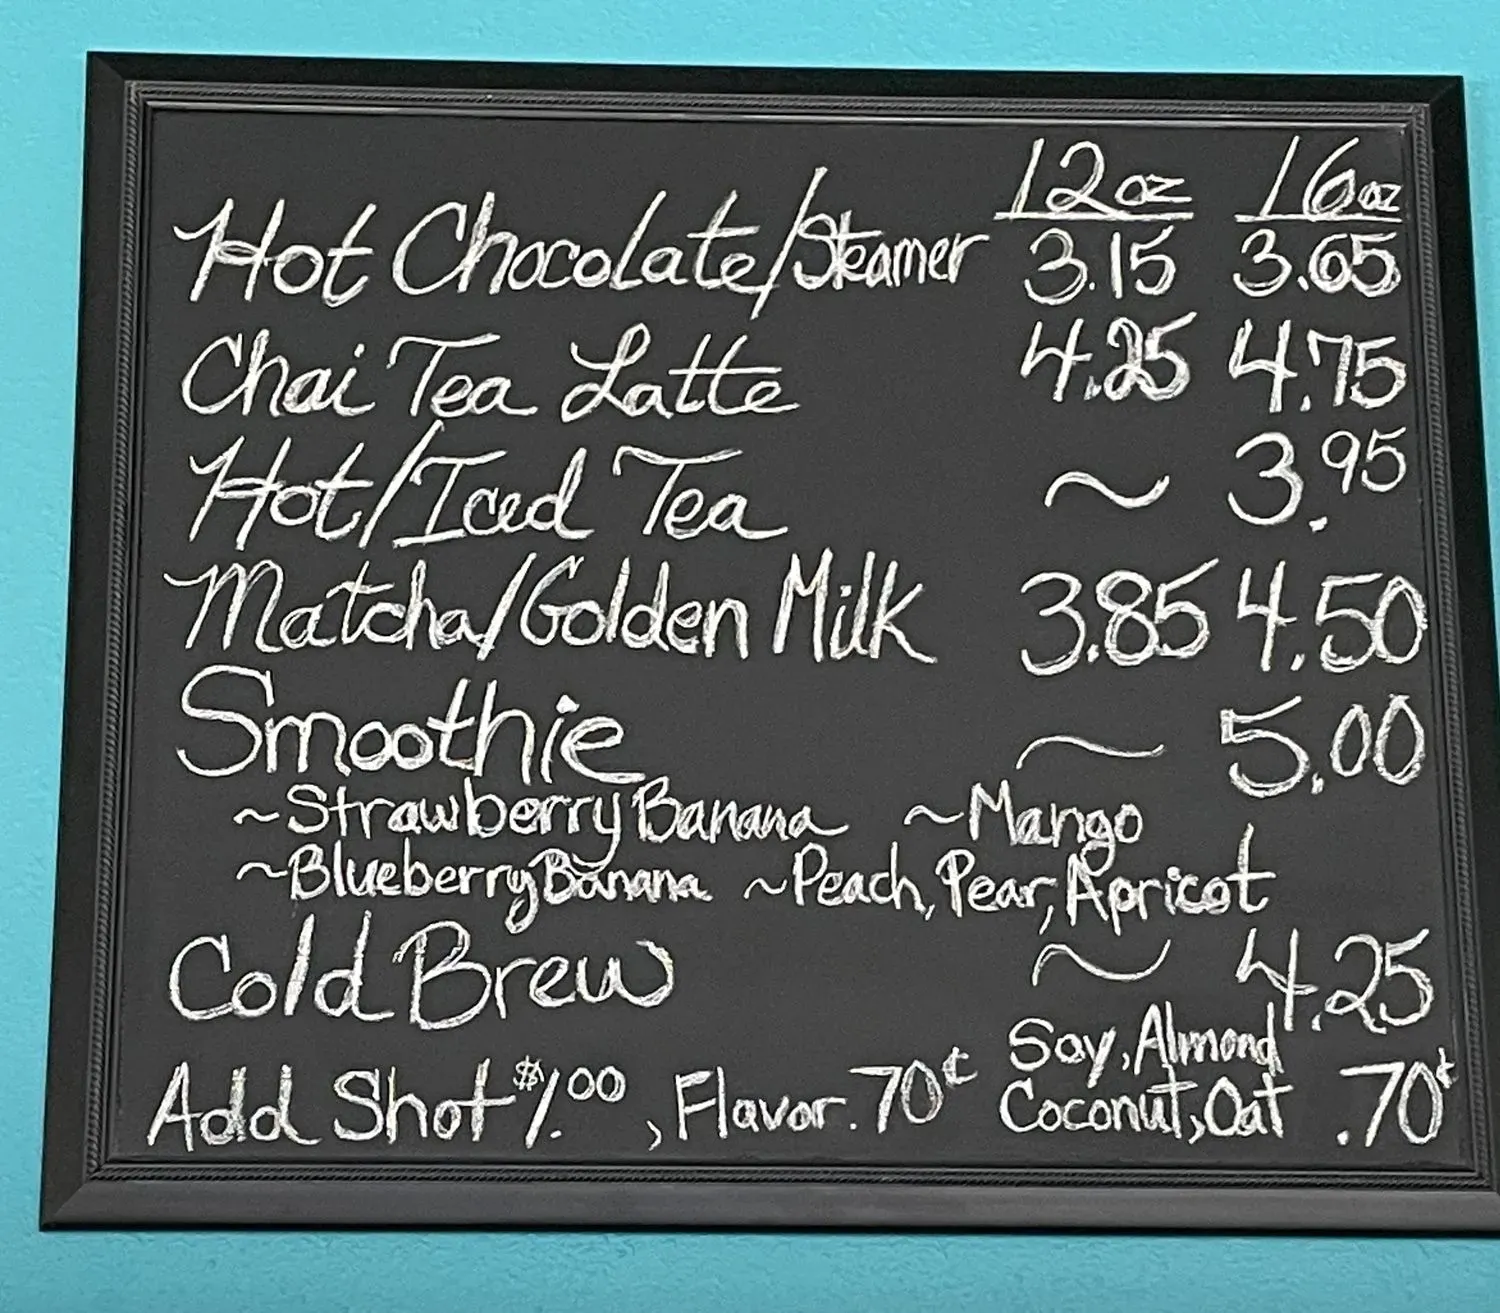 12oz 16oz
Hot Chocolate/Steamer 3.15 3.65
Chai Tea Latte 4.25 4.75
Hot/Iced Tea ~ 3.95
Matcha/Golden Milk 3.85 4.50
Smoothie ~ 5.00
~Strawberry Banana ~Mango
~Blueberry Banana ~Peach, Pear, Apricot
Cold Brew ~ 4.25
Soy, Almond
Add Shot $1.00, Flavor .70¢ Coconut, Oat .70¢